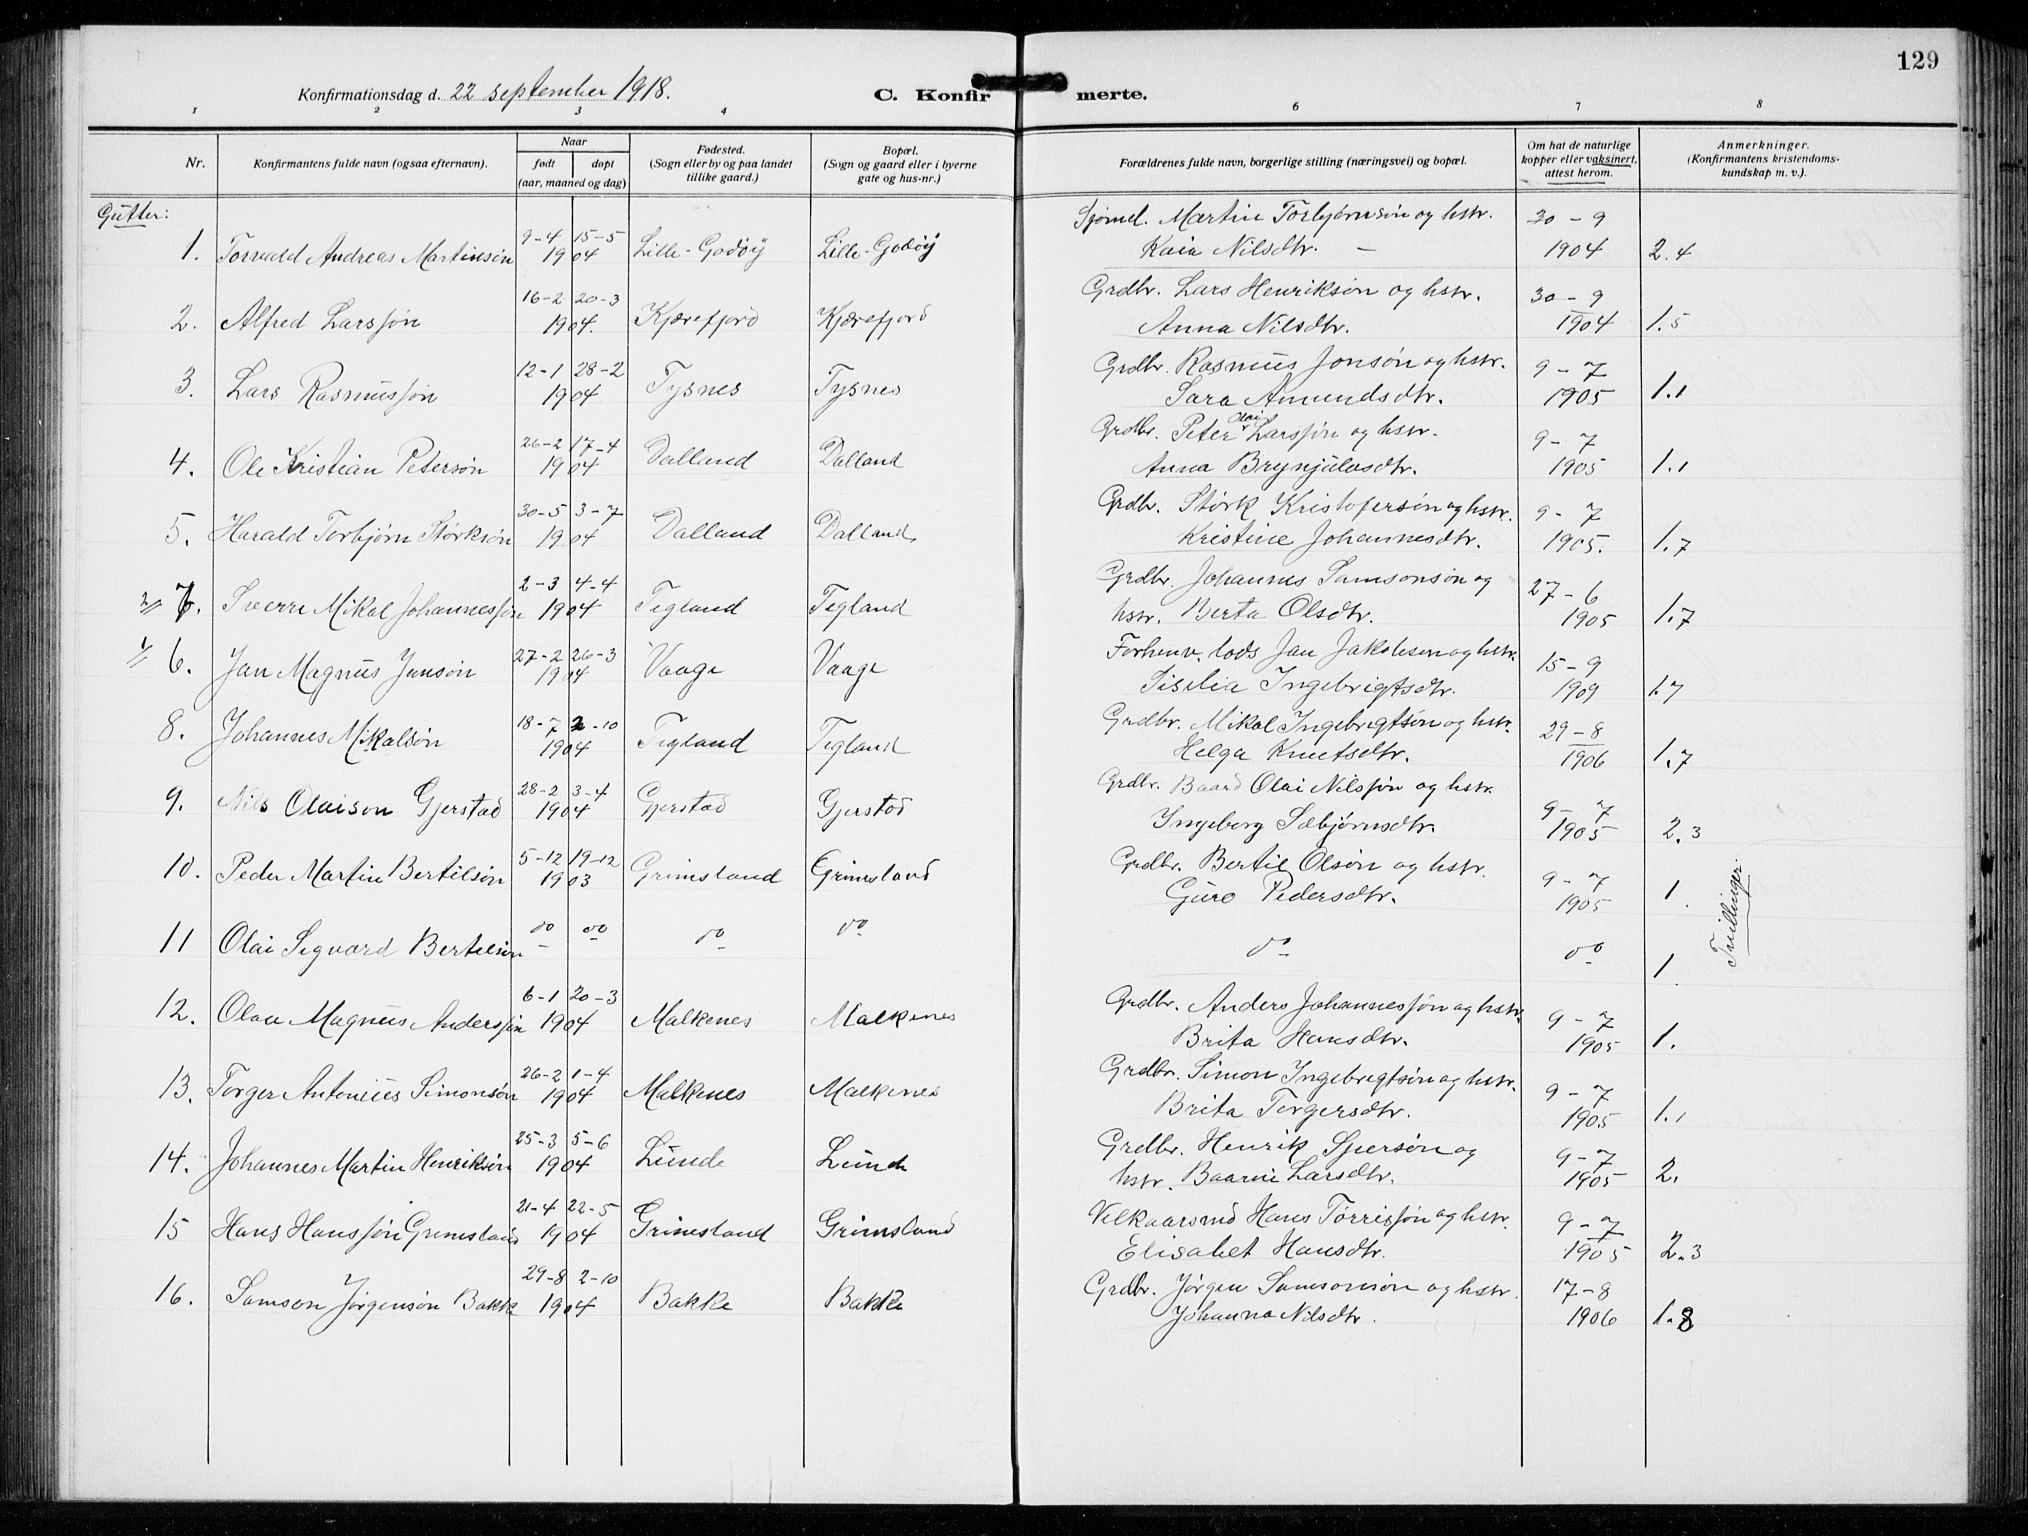 129
Konfirmationsdag d. 22 september 1918.
C. Konfir merte.
1 2 3 4 5 6 7 8
Nr.
Konfirmantens fulde navn (ogsaa efternavn).
Naar
født døpt
(aar, maaned og dag)
Fødested.
(Sogn eller by og paa landet
tillike gaard.)
Bopæl.
(Sogn og gaard eller i byerne
gate og hus-nr.)
Forældrenes fulde navn, borgerlige stilling (næringsvei) og bopæl.
Om hat de naturlige
kopper eller vaksinert,
attest herom.
Anmerkninger.
(Konfirmantens kristendoms-
kundskap m. v.).
Gutter:
9-4 15-5 Sjømd. Martin Torbjørnsøn og hstr. 30-9
1. Torvald Andreas Martinsøn 1904 Lille-Godøy Lille-Godøy Kaia Nilsdtr. — 1904 2.4
16-2 20-3 Grdbr. Lars Henriksøn og hstr. 30-9
2. Alfred Larssøn 1904. Kjærefjord Kjærefjord Anna Nilsdtr. 1904 1.5
12-1 28-2 Grdbr. Rasmus Jonsøn og hstr. 9-7
3. Lars Rasmussøn 1904 Tysnes Tysnes Sara Amundsdtr. 1905 1.1
26-2 17-4 Grdbr. Peter Olai Larssøn og hstr. 9-7
4. Ole Kristian Petersøn 1904 Dalland Dalland Anna Brynjulvsdtr. 1905 1.1
30-5 3-7 Grdbr. Størk Kristofersøn og hstr. 9-7
5. Harald Torbjørn Størksøn 1904 Dalland Dalland Kristine Johannesdtr. 1905. 1.7
2-3 4-4 Grdbr. Johannes Samsonsøn og 27-6
2/ 7. Sverre Mikal Johannessøn 1904 Tegland Tegland hstr. Berta Olsdtr. 1905 1.7
27-2 26-3 Forhenv. lods Jan Jakobsen og hstr. 15-9
1/ 6. Jan Magnus Jansøn 1904 Vaage Vaage Siselia Ingebrigtsdtr. 1909 1.7
18-7 2-10 Grdbr. Mikal Ingebrigtsøn og hstr. 29-8
8. Johannes Mikalsøn 1904 Tegland Tegland Helga Knutsdtr. 1906 1.7
28-2 3-4 Grdbr. Baard Olai Nilssøn og hstr. 9-7
9. Nils Olaison Gjerstad 1904 Gjerstad Gjerstad Ingeborg Sæbjørnsdtr. 1905 2.3
5-12 19-12 Grdbr. Bertil Olsøn og hstr. 9-7
10. Peder Martin Bertilsøn 1903 Grimsland Grimsland Guro Pedersdtr. 1905 1.
Tvillinger.
11 Olai Sigvard Bertilsøn do do do do do do 1.
6-1 20-3 Grdbr. Anders Johannessøn og hstr. 9-7
12. Olav Magnus Anderssøn 1904 Malkenes Malkenes Brita Hansdtr. 1905 1.
26-2 1-4 Grdbr. Simon Ingebrigtsøn og hstr. 9-7
13. Torger Antonius Simonsøn 1904 Malkenes Malkenes Brita Torgersdtr. 1905 1.1
25-3 5-6 Grdbr. Henrik Sjursøn og 9-7
14. Johannes Martin Henriksøn 1904 Lunde Lunde hstr. Larsdtr. 1905 2.
21-4 22-5 Vilkaarsmd Hans Tørrissøn og hstr. 9-7
15 Hans Hanssøn Grimsland 1904 Grimsland Grimsland Elisabet Hansdtr. 1905 2.3
29-8 2-10 Grdbr. Jørgen Samsonsøn og hstr. 17-8
16. Samson Jørgensøn Bakke 1904 Bakke Bakke Johanna Nilsdtr. 1906 1.8